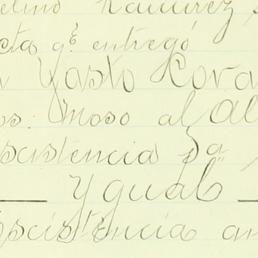 elino Ramirez
cta qᵉ entregó
Yasto Cova
os. Moso al Al
scistencia 5a
Ygual
scistencia an